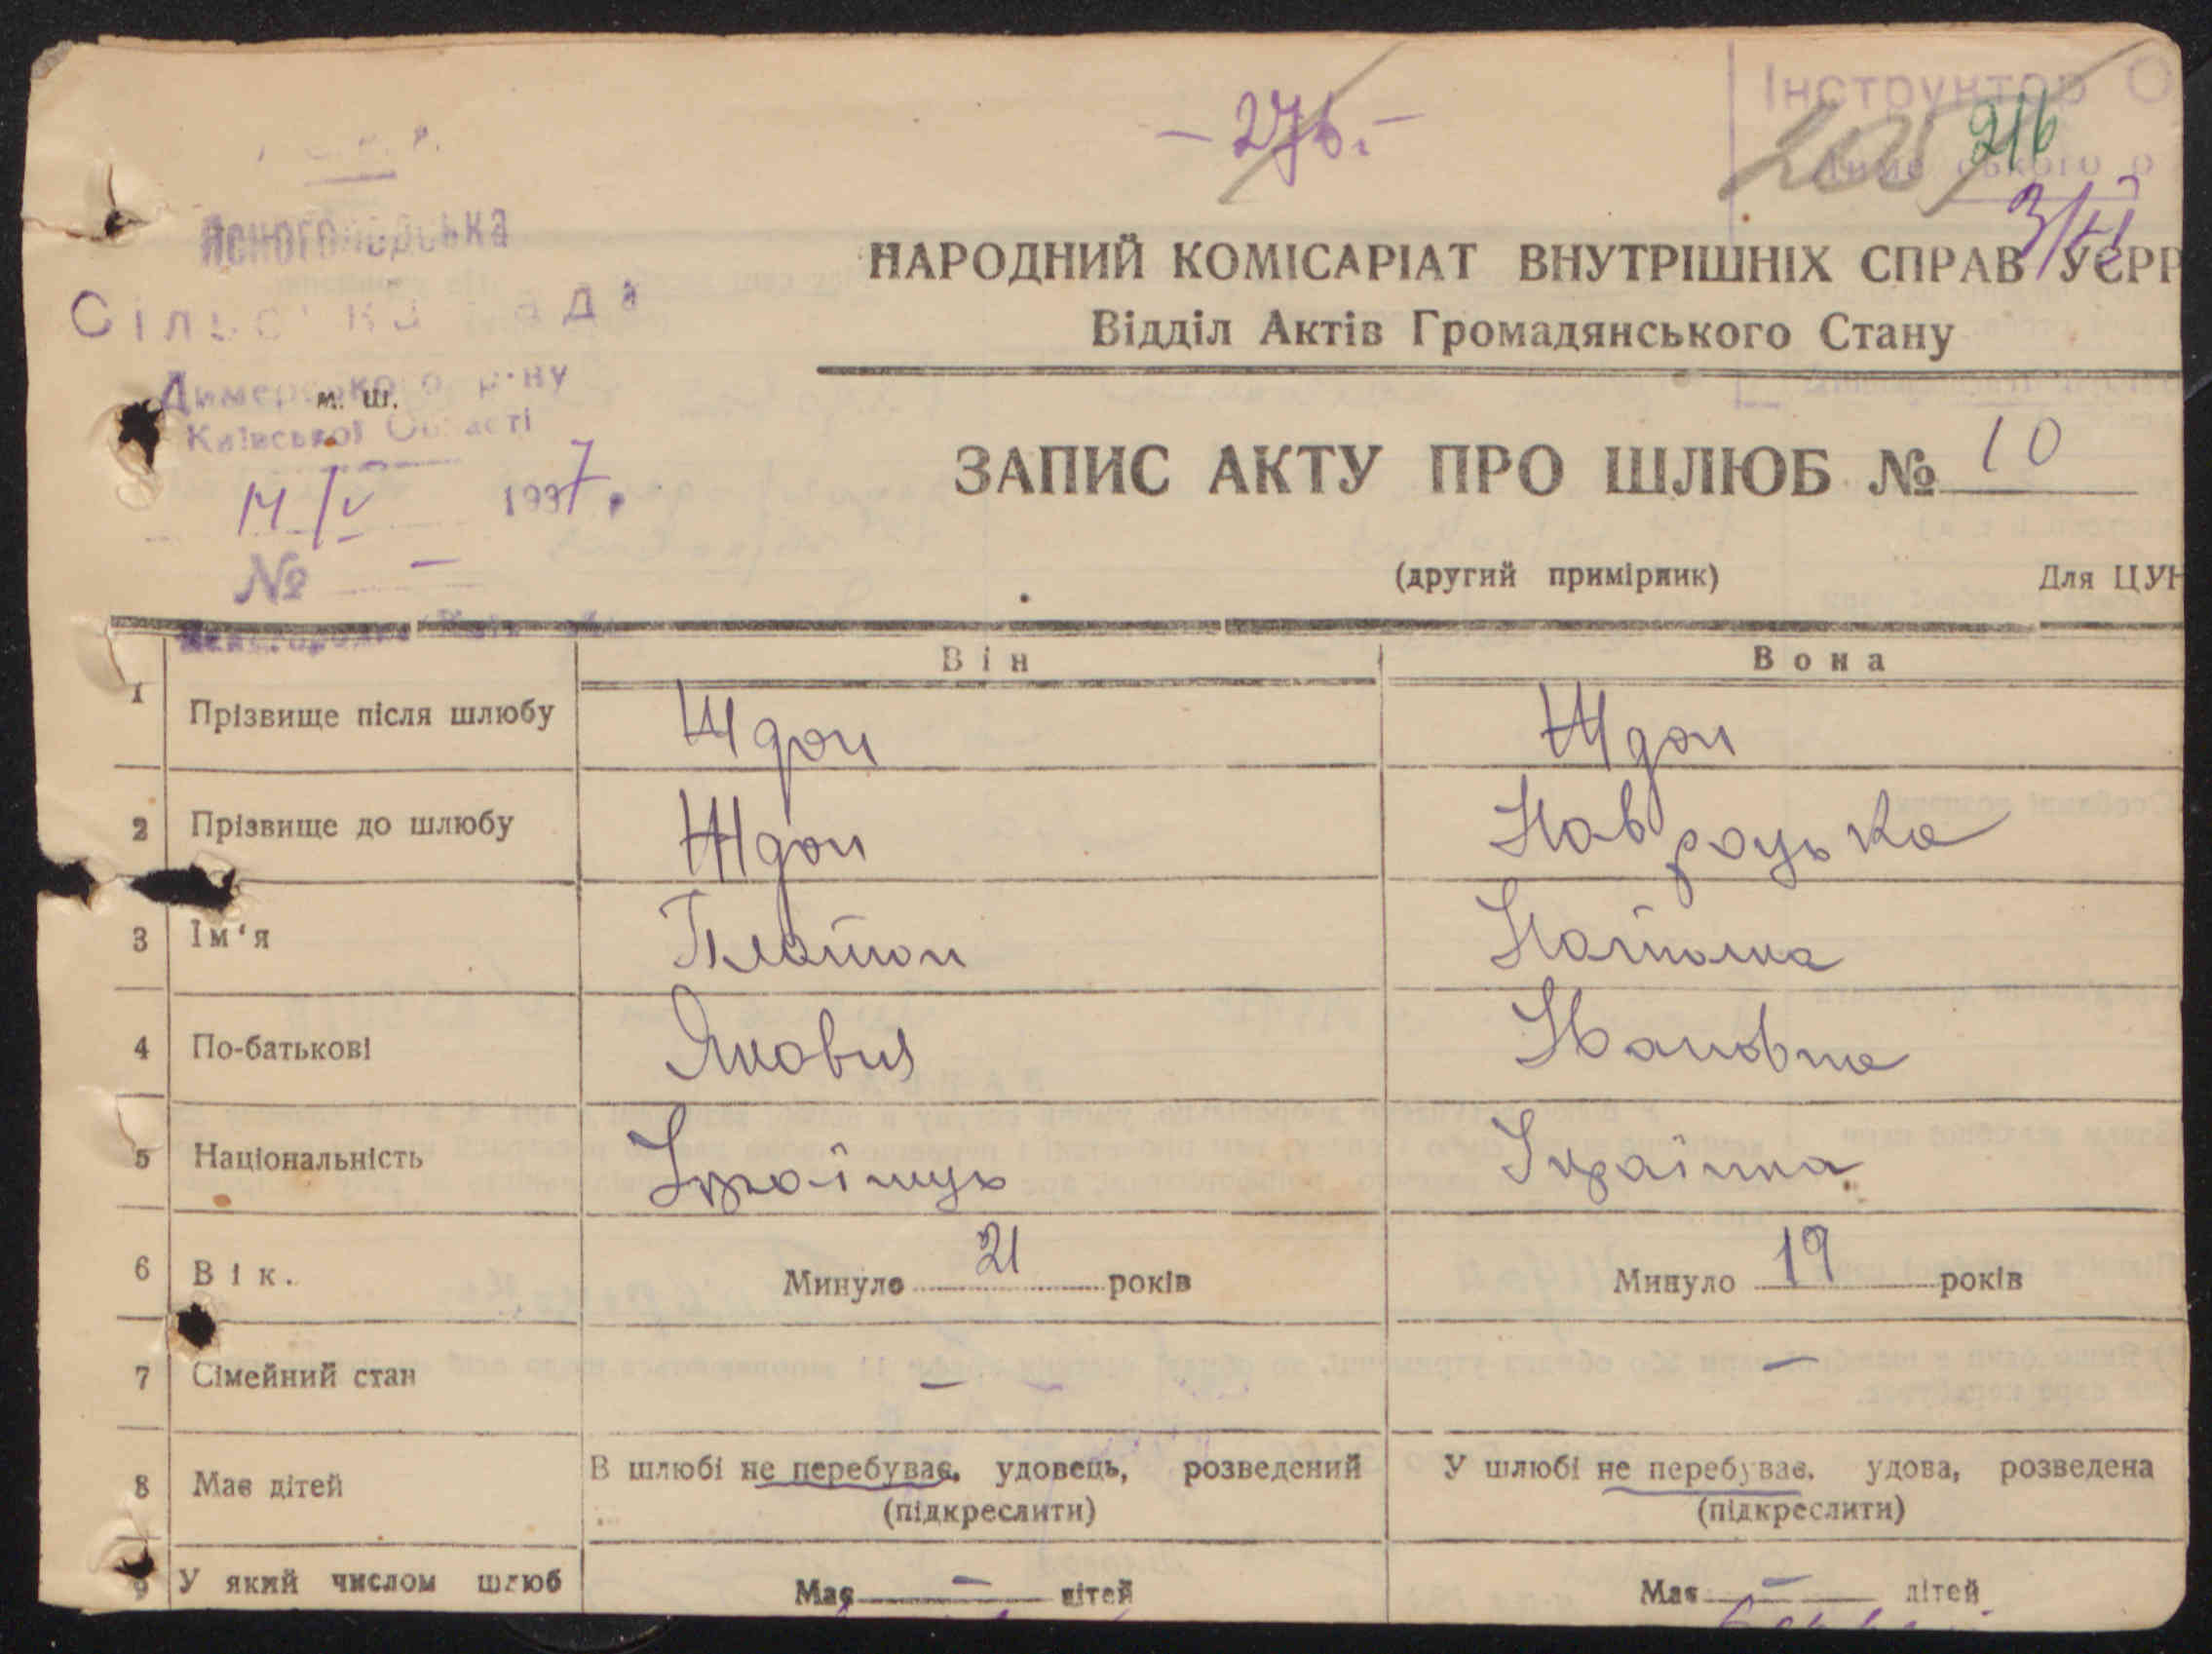 - 276. -
Інструктор
205 216
3/VI
Ясногородська
Сільська Рада
Димерського р-ну
м. ш.
Київської Області
14/V 1937.
№ —
НАРОДНИЙ КОМІСАРІАТ ВНУТРІШНІХ СПРАВ УСРР
Відділ Актів Громадянського Стану
ЗАПИС АКТУ ПРО ШЛЮБ № 10
(другий примірник) Для ЦУН
Він Вона
1 Прізвище після шлюбу Ждон Ждон
2 Прізвище до шлюбу Ждон Навроцька
3 Ім'я Платон Наталка
4 По-батькові Якович Івановна
5 Національність Українць Українка
6 Вік. Минуло 21 років Минуло 19 років
7 Сімейний стан — —
8 Має дітей В шлюбі не перебуває, удовець, розведений У шлюбі не перебуває, удова, розведена
(підкреслити) (підкреслити)
9 У який числом шлюб Має — дітей Має — дітей